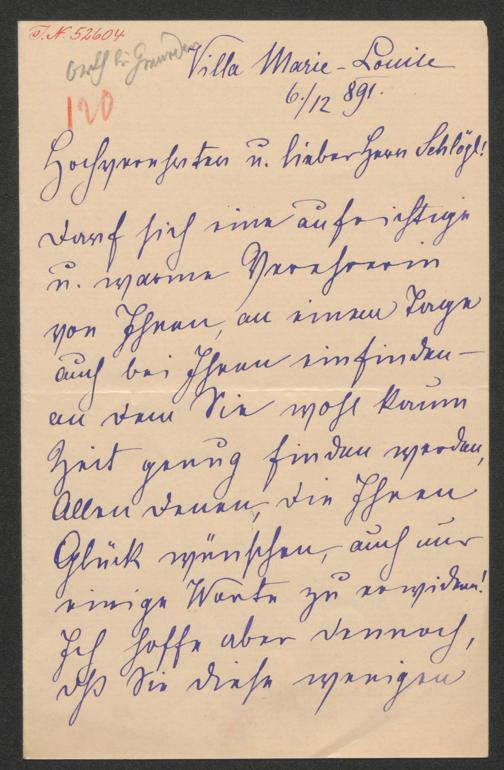 I.N. 52604
Villa Marie-Louise
6./12 891.
120
Hochverehrter u. lieber Herr Schlögl!
Darf sich eine aufrichtige
u. warme Verehrerin
von Ihnen, an einem Tage
auch bei Ihnen einfinden –
an dem Sie wohl kaum
Zeit genug finden werden,
Allen denen, die Ihnen
Glück wünschen, auch nur
einige Worte zu erwidern!
Ich hoffe aber dennoch,
daß Sie diese wenigen